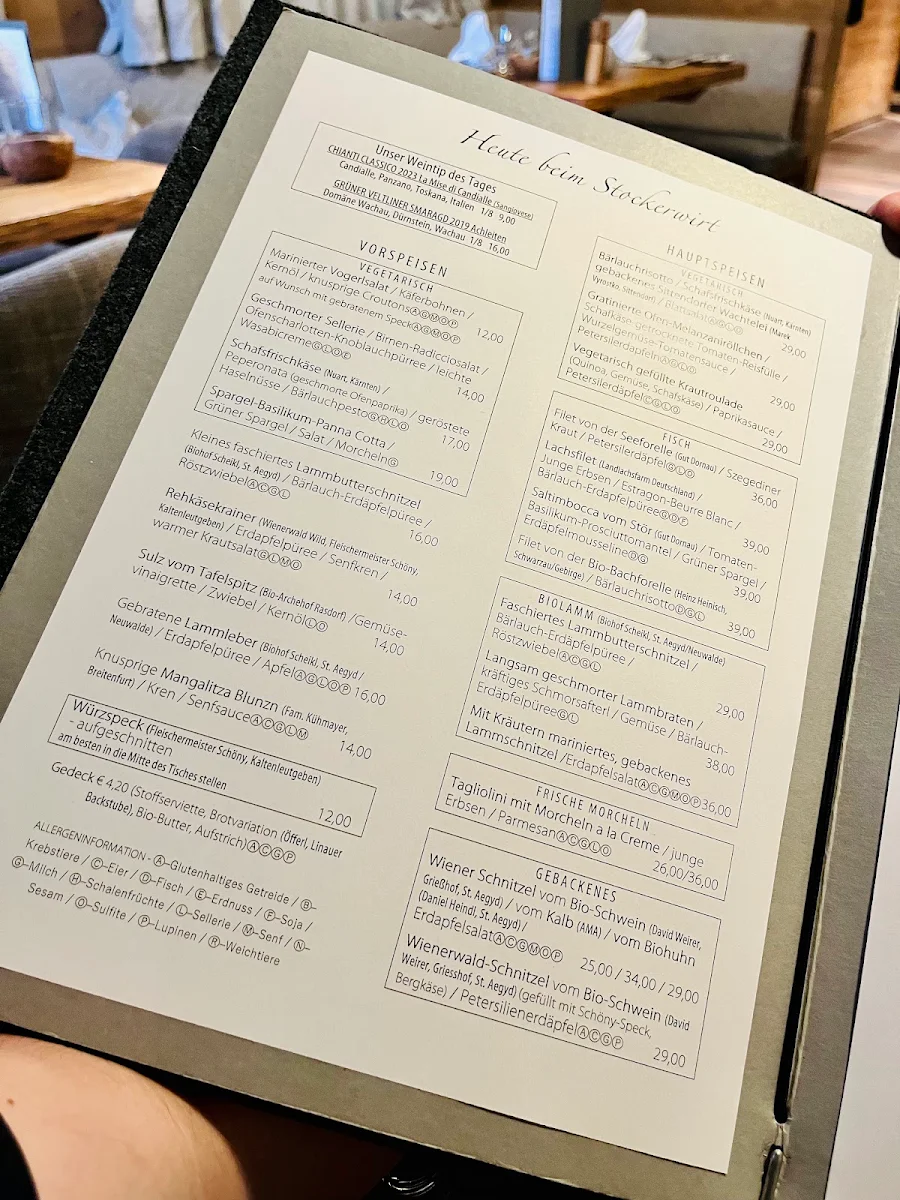 Heute beim Stockerwirt
Unser Weintip des Tages
CHIANTI CLASSICO 2023 La Mise di Candialle (Sangiovese)
Candialle, Panzano, Toskana, Italien 1/8 9,00
GRÜNER VELTLINER SMARAGD 2019 Achleiten
Domäne Wachau, Dürnstein, Wachau 1/8 16,00
VORSPEISEN
VEGETARISCH
Marinierter Vogerlsalat / Käferbohnen /
Kernöl / knusprige CroutonsⒶⒼⓂⓄⓅ
auf Wunsch mit gebratenem SpeckⒶⒼⓂⓄⓅ 12,00
Geschmorter Sellerie / Birnen-Radicciosalat /
Ofenscharlotten-Knoblauchpürree / leichte
WasabicremeⒼⓁⓄⒺ 14,00
Schafsfrischkäse (Nuart, Kärnten) /
Peperonata (geschmorte Ofenpaprika) / geröstete
Haselnüsse / BärlauchpestoⒼⒽⓁⓄ 17,00
Spargel-Basilikum-Panna Cotta /
Grüner Spargel / Salat / MorchelnⒼ 19,00
Kleines faschiertes Lammbutterschnitzel
(Biohof Scheikl, St. Aegyd) / Bärlauch-Erdäpfelpüree /
RöstzwiebelⒶⒸⒼⓁ 16,00
Rehkäsekrainer (Wienerwald Wild, Fleischermeister Schöny,
Kaltenleutgeben) / Erdäpfelpüree / Senfkren /
warmer KrautsalatⒼⓁⓂⓄ 14,00
Sulz vom Tafelspitz (Bio-Archehof Rasdorf) / Gemüse-
vinaigrette / Zwiebel / KernölⓁⓄ 14,00
Gebratene Lammleber (Biohof Scheikl, St. Aegyd /
Neuwalde) / Erdäpfelpüree / ApfelⒶⒼⓁⓄⓅ 16,00
Knusprige Mangalitza Blunzn (Fam. Kühmayer,
Breitenfurt) / Kren / SenfsauceⒶⒸⒼⓁⓂ 14,00
Würzspeck (Fleischermeister Schöny, Kaltenleutgeben)
- aufgeschnitten
am besten in die Mitte des Tisches stellen 12,00
Gedeck € 4,20 (Stoffserviette, Brotvariation (Öfferl, Linauer
Backstube), Bio-Butter, Aufstrich)ⒶⒸⒼⓅ
ALLERGENINFORMATION - Ⓐ-Glutenhaltiges Getreide / Ⓑ-
Krebstiere / Ⓒ-Eier / Ⓓ-Fisch / Ⓔ-Erdnuss / Ⓕ-Soja /
Ⓖ-Milch / Ⓗ-Schalenfrüchte / Ⓛ-Sellerie / Ⓜ-Senf / Ⓝ-
Sesam / Ⓞ-Sulfite / Ⓟ-Lupinen / Ⓡ-Weichtiere
HAUPTSPEISEN
VEGETARISCH
Bärlauchrisotto / Schafsfrischkäse (Nuart, Kärnten)
gebackenes Sittendorfer Wachtelei (Marek
Vyrostko, Sittendorf) / Blattsalat 29,00
Gratinierte Ofen-Melanzaniröllchen /
Schafkäse-getrocknete Tomaten-Reisfülle /
Wurzelgemüse-Tomatensauce /
Petersilerdäpfeln 29,00
Vegetarisch gefüllte Krautroulade
(Quinoa, Gemüse, Schafskäse) / Paprikasauce /
PetersilerdäpfelⒸⒼⓁⓄ 29,00
FISCH
Filet von der Seeforelle (Gut Dornau) / Szegediner
Kraut / PetersilerdäpfelⒼⓁⓄ 36,00
Lachsfilet (Landlachsfarm Deutschland) /
Junge Erbsen / Estragon-Beurre Blanc /
Bärlauch-ErdäpfelpüreeⒼⓄⒹ 39,00
Saltimbocca vom Stör (Gut Dornau) / Tomaten-
Basilikum-Prosciuttomantel / Grüner Spargel /
ErdäpfelmousselineⒹⒼ 39,00
Filet von der Bio-Bachforelle (Heinz Heinisch,
Schwarzau/Gebirge) / BärlauchrisottoⒹⒼⓁ 39,00
BIOLAMM (Biohof Scheikl, St. Aegyd/Neuwalde)
Faschiertes Lammbutterschnitzel /
Bärlauch-Erdäpfelpüree /
RöstzwiebelⒶⒸⒼⓁ 29,00
Langsam geschmorter Lammbraten /
kräftiges Schmorsafterl / Gemüse / Bärlauch-
ErdäpfelpüreeⒼⓁ 38,00
Mit Kräutern mariniertes, gebackenes
Lammschnitzel /ErdäpfelsalatⒶⒸⒼⓂⓄⓅ36,00
FRISCHE MORCHELN
Tagliolini mit Morcheln a la Creme / junge
Erbsen / ParmesanⒶⒸⒼⓁⓄ 26,00/36,00
GEBACKENES
Wiener Schnitzel vom Bio-Schwein (David Weirer,
Grießhof, St. Aegyd) / vom Kalb (AMA) / vom Biohuhn
(Daniel Heindl, St. Aegyd) /
ErdäpfelsalatⒶⒸⒼⓂⓄⓅ 25,00 / 34,00 / 29,00
Wienerwald-Schnitzel vom Bio-Schwein (David
Weirer, Griesshof, St. Aegyd) (gefüllt mit Schöny-Speck,
Bergkäse) / PetersilienerdäpfelⒶⒸⒼⓅ 29,00